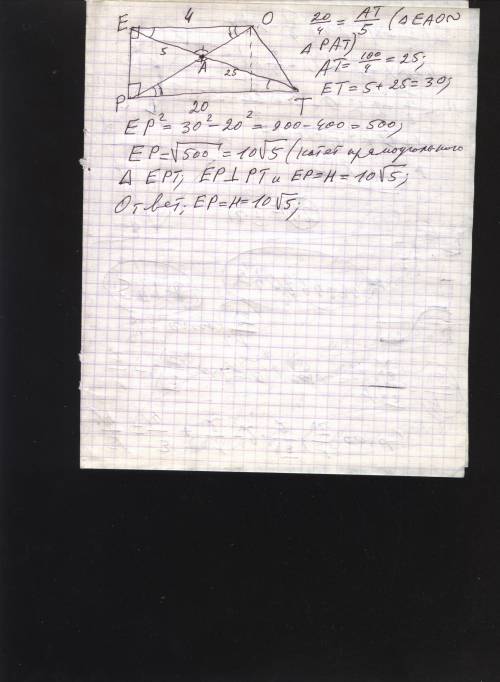 E 4 O
5
A 25
P 20 T
20/4 = AT/5 (ΔEAO ~
ΔPAT)
AT = 100/4 = 25;
ET = 5 + 25 = 30;
EP² = 30² - 20² = 900 - 400 = 500;
EP = √500 = 10√5 (катет прямоугольного
Δ EPT; EP⊥PT и EP = H = 10√5;
Ответ: EP = H = 10√5;